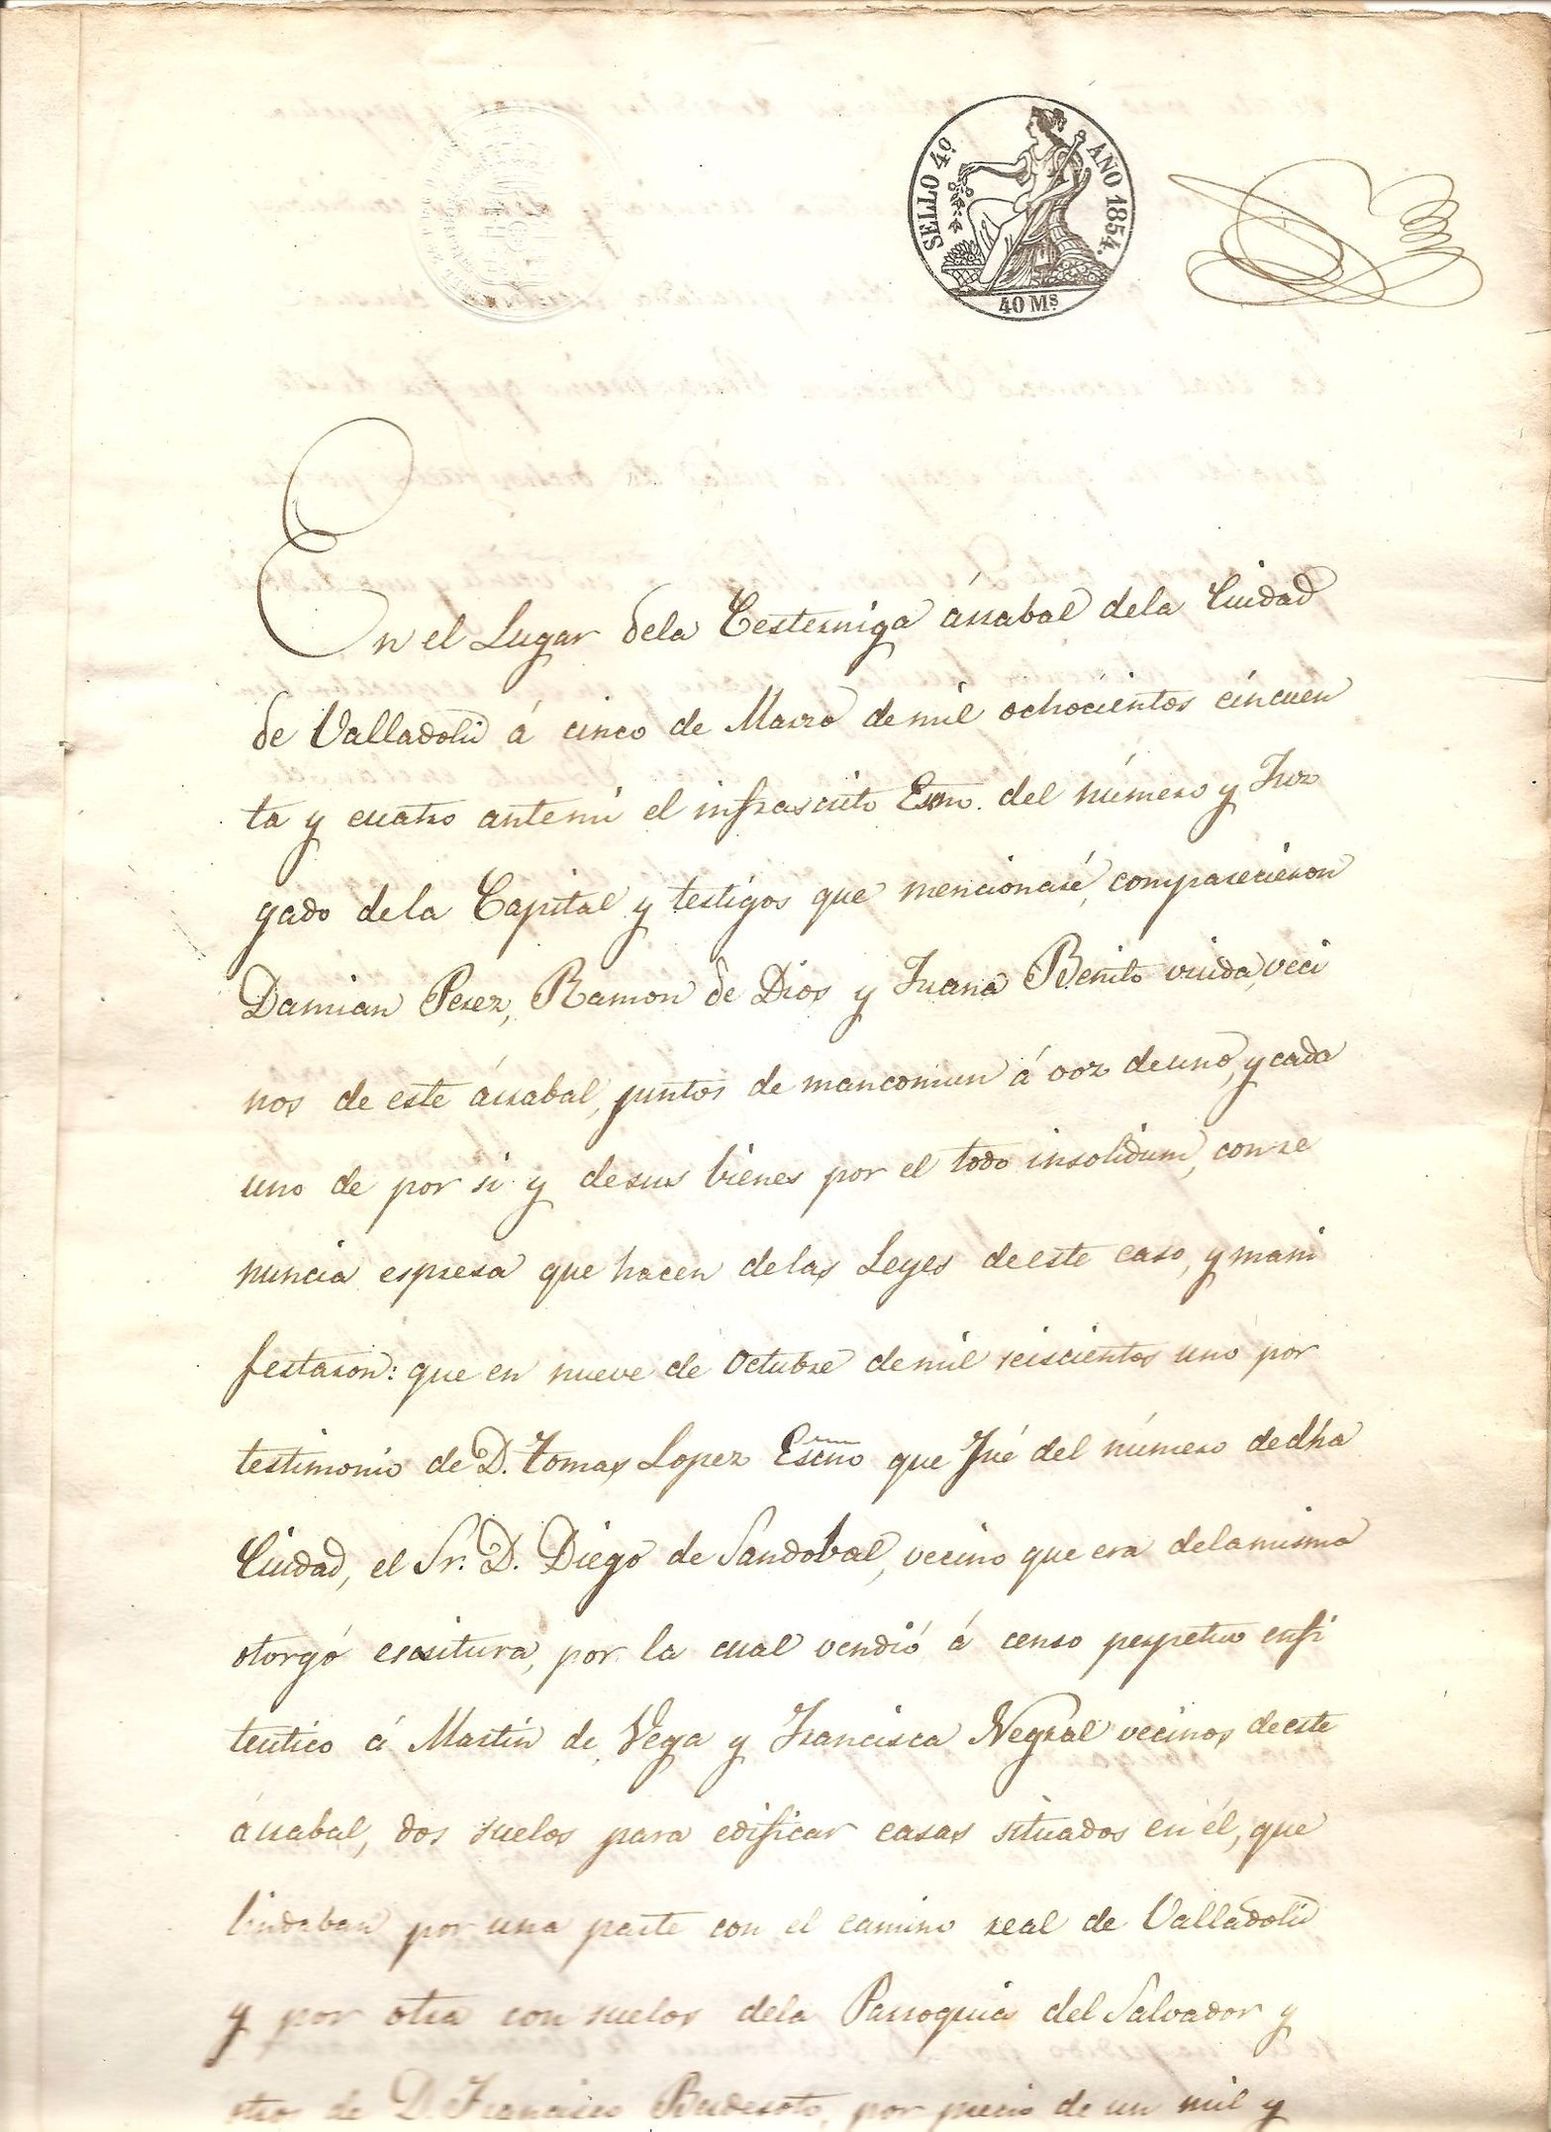 SELLO 4º AÑO 1854.
40 Ms
En el Lugar dela Cesterniga árrabal dela Ciudad
de Valladolid á cinco de Marzo de mil ochocientos cincuen
ta y cuatro antemi el infrascrito Esno. del número y Juz
gado dela Capital y testigos que mencionaré, comparecieron
Damian Perez, Ramon de Dios y Juana Benito viuda, veci
nos de este árrabal, juntos de mancomun á voz de uno, y cada
uno de por si y desus bienes por el todo insolidum, con re
nuncia espresa que hacen delas Leyes deeste caso, y mani
festaron: que en nueve de Octubre demil seiscientos uno por
testimonio de D. Tomas Lopez Escno que fué del número dedha
Ciudad, el Sr. D. Diego de Sandobal, vecino que era delamisma
otorgó escritura, por la cual vendió á censo perpetuo enfi
teutico á Martin de Vega y Francisca Negral vecinos deeste
árrabal, dos suelos para edificar casas situados en él, que
lindaban por una parte con el camino real de Valladolid
y por otra con suelos dela Parroquia del Salvador y
otro de D. Francisco por precio de un mil y